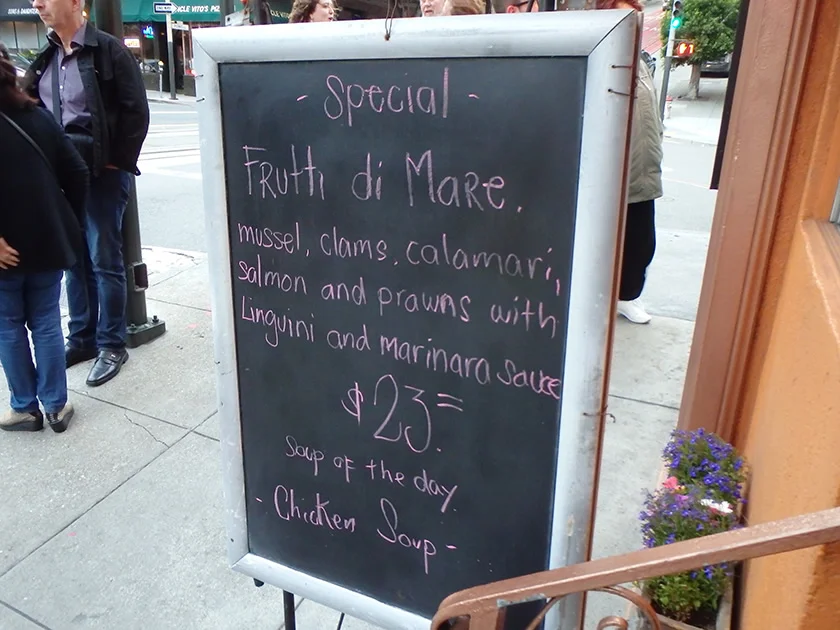 - Special -
Frutti di Mare.
mussel, clams, calamari,
salmon and prawns with
Linguini and marinara sauce
$23=
soup of the day
- Chicken Soup -